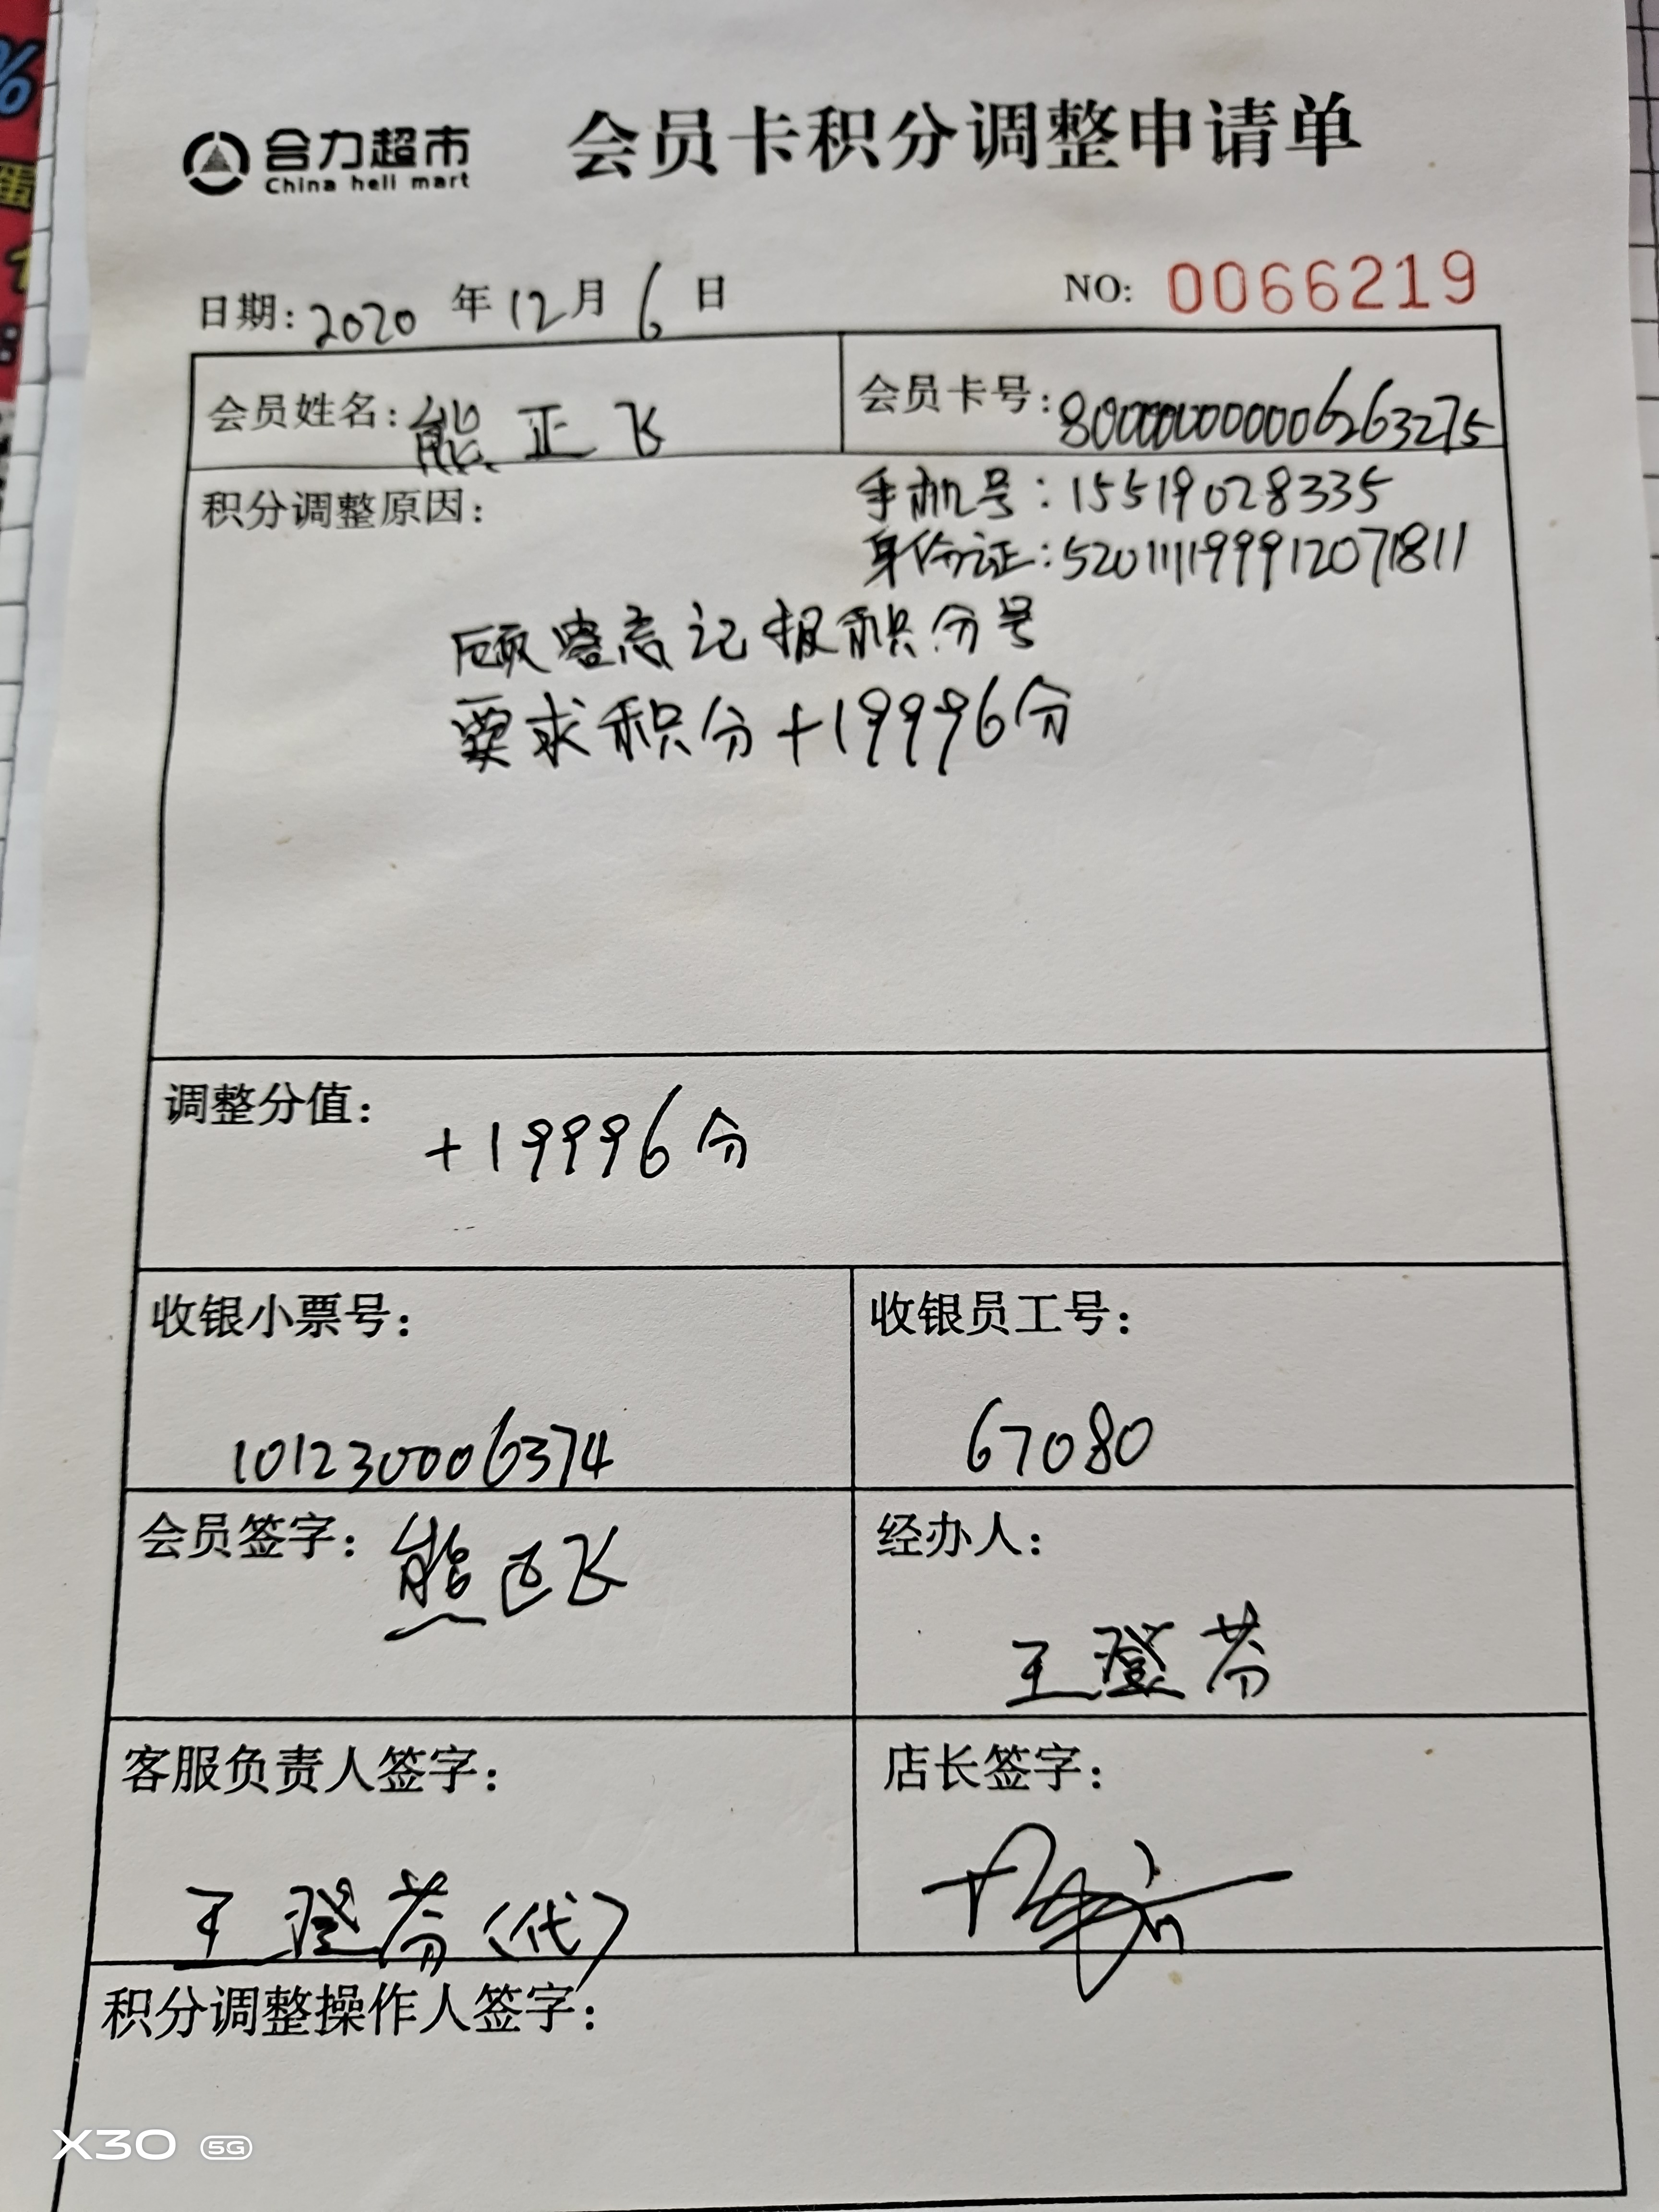 合力超市
China heli mart
会员卡积分调整申请单
日期: 2020 年 12 月 6 日
NO: 0066219
会员姓名: 熊正飞
会员卡号: 8000000000006263275
手机号: 15519028335
积分调整原因:
身份证: 520111199912071811
顾客忘记报积分号
要求积分+19996分
调整分值: +19996分
收银小票号:
收银员工号:
101230006374
67080
会员签字: 熊正飞
经办人:
王登芬
客服负责人签字:
店长签字:
王登芬(代)
积分调整操作人签字:
X30 5G
%
蛋